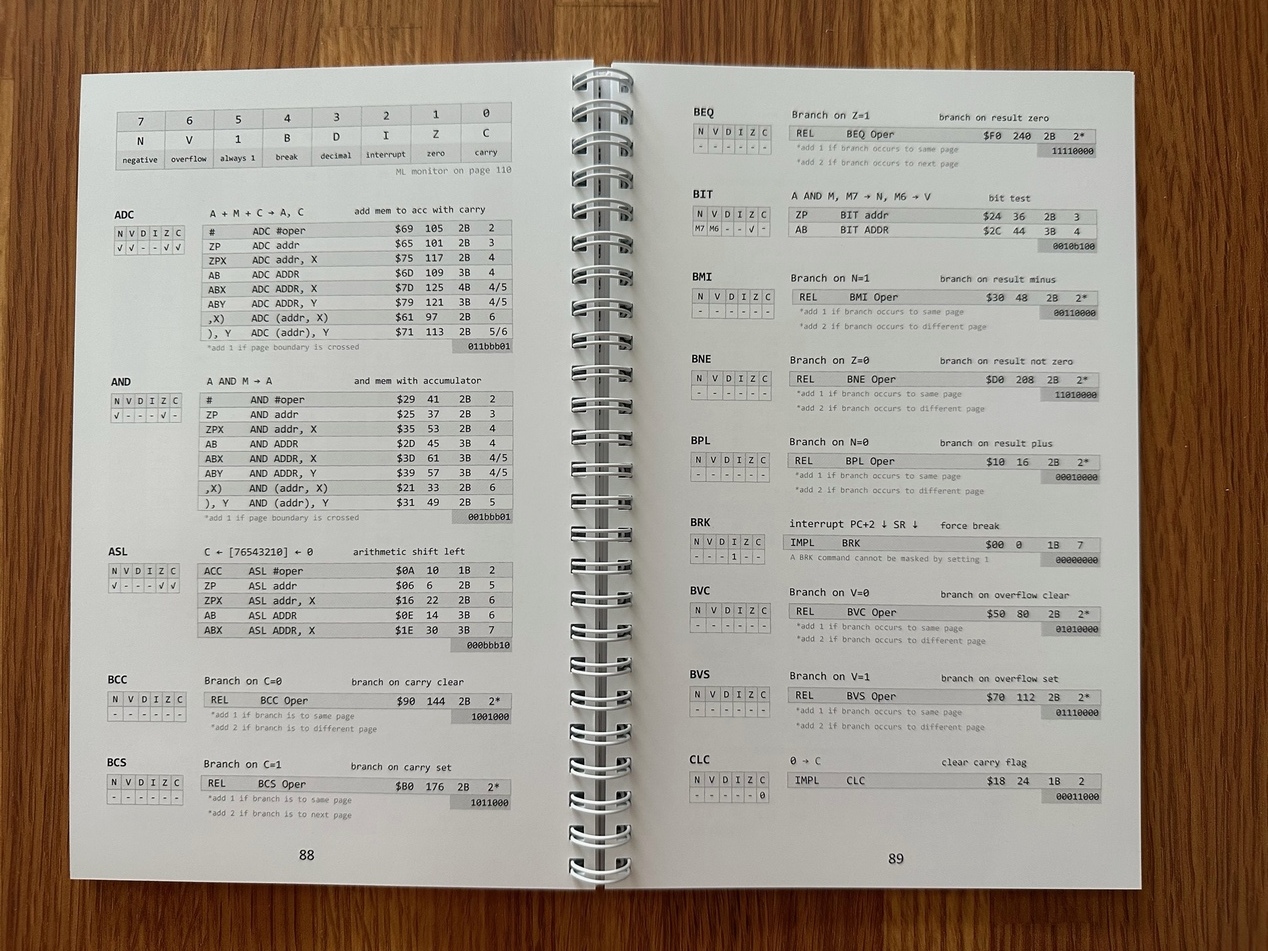 7 6 5 4 3 2 1 0
N V 1 B D I Z C
negative overflow always 1 break decimal interrupt zero carry
ML monitor on page 110
ADC A + M + C → A, C add mem to acc with carry
N V D I Z C
√ √ - - √ √
# ADC #oper $69 105 2B 2
ZP ADC addr $65 101 2B 3
ZPX ADC addr, X $75 117 2B 4
AB ADC ADDR $6D 109 3B 4
ABX ADC ADDR, X $7D 125 4B 4/5
ABY ADC ADDR, Y $79 121 3B 4/5
,X) ADC (addr, X) $61 97 2B 6
), Y ADC (addr), Y $71 113 2B 5/6
*add 1 if page boundary is crossed 011bbb01
AND A AND M → A and mem with accumulator
N V D I Z C
√ - - - √ -
# AND #oper $29 41 2B 2
ZP AND addr $25 37 2B 3
ZPX AND addr, X $35 53 2B 4
AB AND ADDR $2D 45 3B 4
ABX AND ADDR, X $3D 61 3B 4/5
ABY AND ADDR, Y $39 57 3B 4/5
,X) AND (addr, X) $21 33 2B 6
), Y AND (addr), Y $31 49 2B 5
*add 1 if page boundary is crossed 001bbb01
ASL C ← [76543210] ← 0 arithmetic shift left
N V D I Z C
√ - - - √ √
ACC ASL #oper $0A 10 1B 2
ZP ASL addr $06 6 2B 5
ZPX ASL addr, X $16 22 2B 6
AB ASL ADDR $0E 14 3B 6
ABX ASL ADDR, X $1E 30 3B 7
000bbb10
BCC Branch on C=0 branch on carry clear
N V D I Z C
- - - - - -
REL BCC Oper $90 144 2B 2*
*add 1 if branch is to same page 1001000
*add 2 if branch is to different page
BCS Branch on C=1 branch on carry set
N V D I Z C
- - - - - -
REL BCS Oper $B0 176 2B 2*
*add 1 if branch is to same page 1011000
*add 2 if branch is to next page
88
BEQ Branch on Z=1 branch on result zero
N V D I Z C
- - - - - -
REL BEQ Oper $F0 240 2B 2*
*add 1 if branch occurs to same page 11110000
*add 2 if branch occurs to next page
BIT A AND M, M7 → N, M6 → V bit test
N V D I Z C
M7 M6 - - √ -
ZP BIT addr $24 36 2B 3
AB BIT ADDR $2C 44 3B 4
0010b100
BMI Branch on N=1 branch on result minus
N V D I Z C
- - - - - -
REL BMI Oper $30 48 2B 2*
*add 1 if branch occurs to same page 00110000
*add 2 if branch occurs to different page
BNE Branch on Z=0 branch on result not zero
N V D I Z C
- - - - - -
REL BNE Oper $D0 208 2B 2*
*add 1 if branch occurs to same page 11010000
*add 2 if branch occurs to different page
BPL Branch on N=0 branch on result plus
N V D I Z C
- - - - - -
REL BPL Oper $10 16 2B 2*
*add 1 if branch occurs to same page 00010000
*add 2 if branch occurs to different page
BRK interrupt PC+2 ↓ SR ↓ force break
N V D I Z C
- - - 1 - -
IMPL BRK $00 0 1B 7
A BRK command cannot be masked by setting 1 00000000
BVC Branch on V=0 branch on overflow clear
N V D I Z C
- - - - - -
REL BVC Oper $50 80 2B 2*
*add 1 if branch occurs to same page 01010000
*add 2 if branch occurs to different page
BVS Branch on V=1 branch on overflow set
N V D I Z C
- - - - - -
REL BVS Oper $70 112 2B 2*
*add 1 if branch occurs to same page 01110000
*add 2 if branch occurs to different page
CLC 0 → C clear carry flag
N V D I Z C
- - - - - 0
IMPL CLC $18 24 1B 2
00011000
89